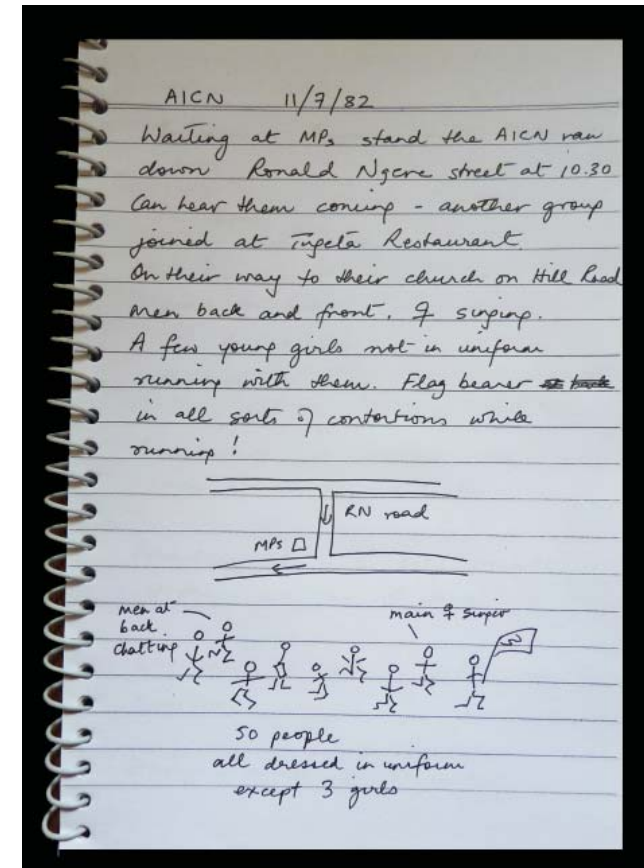 AICN 11/7/82
Waiting at MPs stand the AICN ran
down Ronald Ngere street at 10.30
Can hear them coming - another group
joined at Tugela Restaurant.
On their way to their church on Hill Road
Men back and front. ♀ singing.
A few young girls not in uniform
running with them. Flag bearer
in all sorts of contortions while
running!
RN road
MPs
men at
back
chatting
main ♀ singer
50 people
all dressed in uniform
except 3 girls